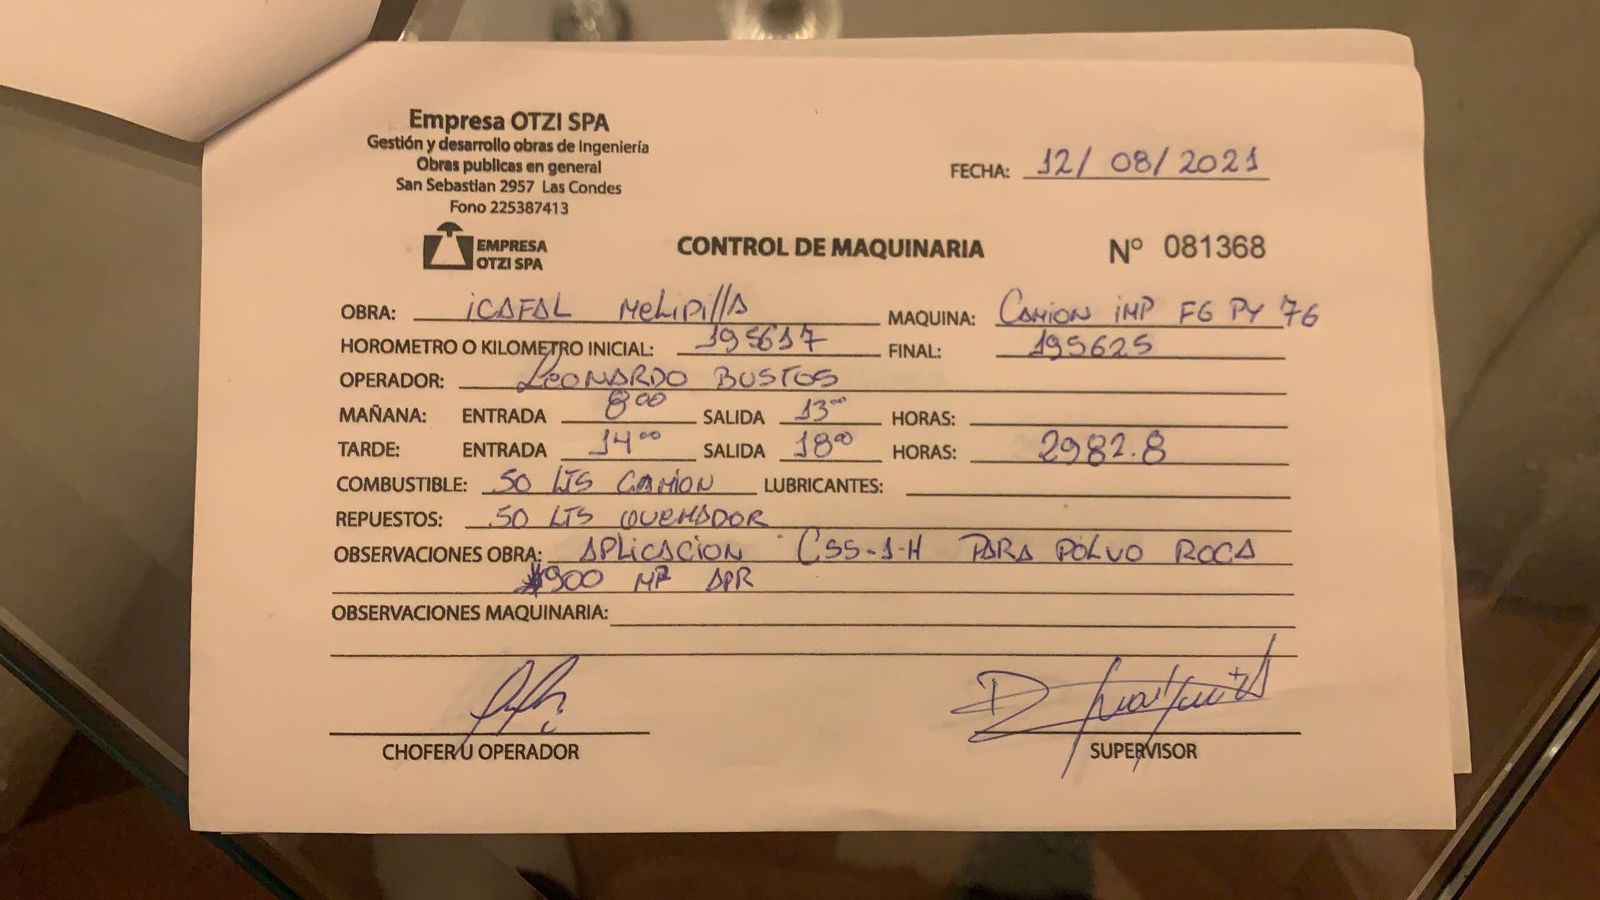 Empresa OTZI SPA
Gestión y desarrollo obras de Ingeniería
Obras publicas en general
San Sebastian 2957 Las Condes
Fono 225387413
FECHA: 12/ 08/2021
EMPRESA
OTZI SPA
CONTROL DE MAQUINARIA
Nº 081368
OBRA: iCAFAL MeLipillA MAQUINA: CAMION iMP FG PY 76
HOROMETRO O KILOMETRO INICIAL: 195617 FINAL: 195625
OPERADOR: LEONARDO BUSTOS
MAÑANA: ENTRADA 8 00 SALIDA 13 00 HORAS:
TARDE: ENTRADA 14 00 SALIDA 18 00 HORAS: 2982.8
COMBUSTIBLE: 50 LTS CAMION LUBRICANTES:
REPUESTOS: 50 LTS QUEMADOR
OBSERVACIONES OBRA: APLICACION CSS-1-H PARA POLVO ROCA
900 M2 APR
OBSERVACIONES MAQUINARIA:
CHOFER U OPERADOR
SUPERVISOR